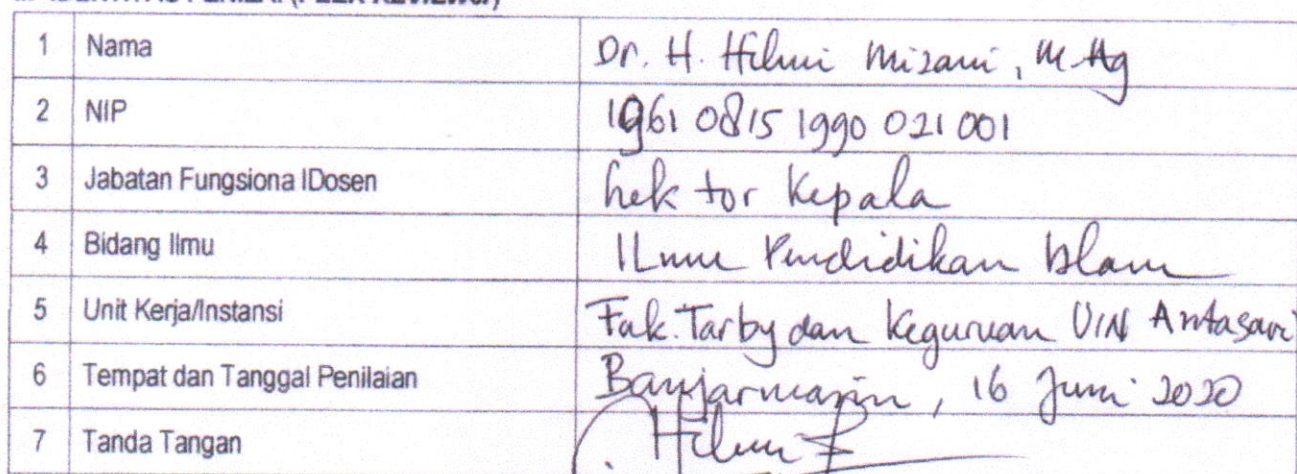 IDENTITAS PENILAI (PEER REVIEWER)
1 Nama Dr. H. Hilmi Mizani, M.Ag
2 NIP 19610815 1990 021 001
3 Jabatan Fungsiona lDosen Lektor Kepala
4 Bidang Ilmu Ilmu Pendidikan Islam
5 Unit Kerja/Instansi Fak. Tarby dan Keguruan UIN Antasari
6 Tempat dan Tanggal Penilaian Banjarmasin, 16 Juni 2020
7 Tanda Tangan Hilmi